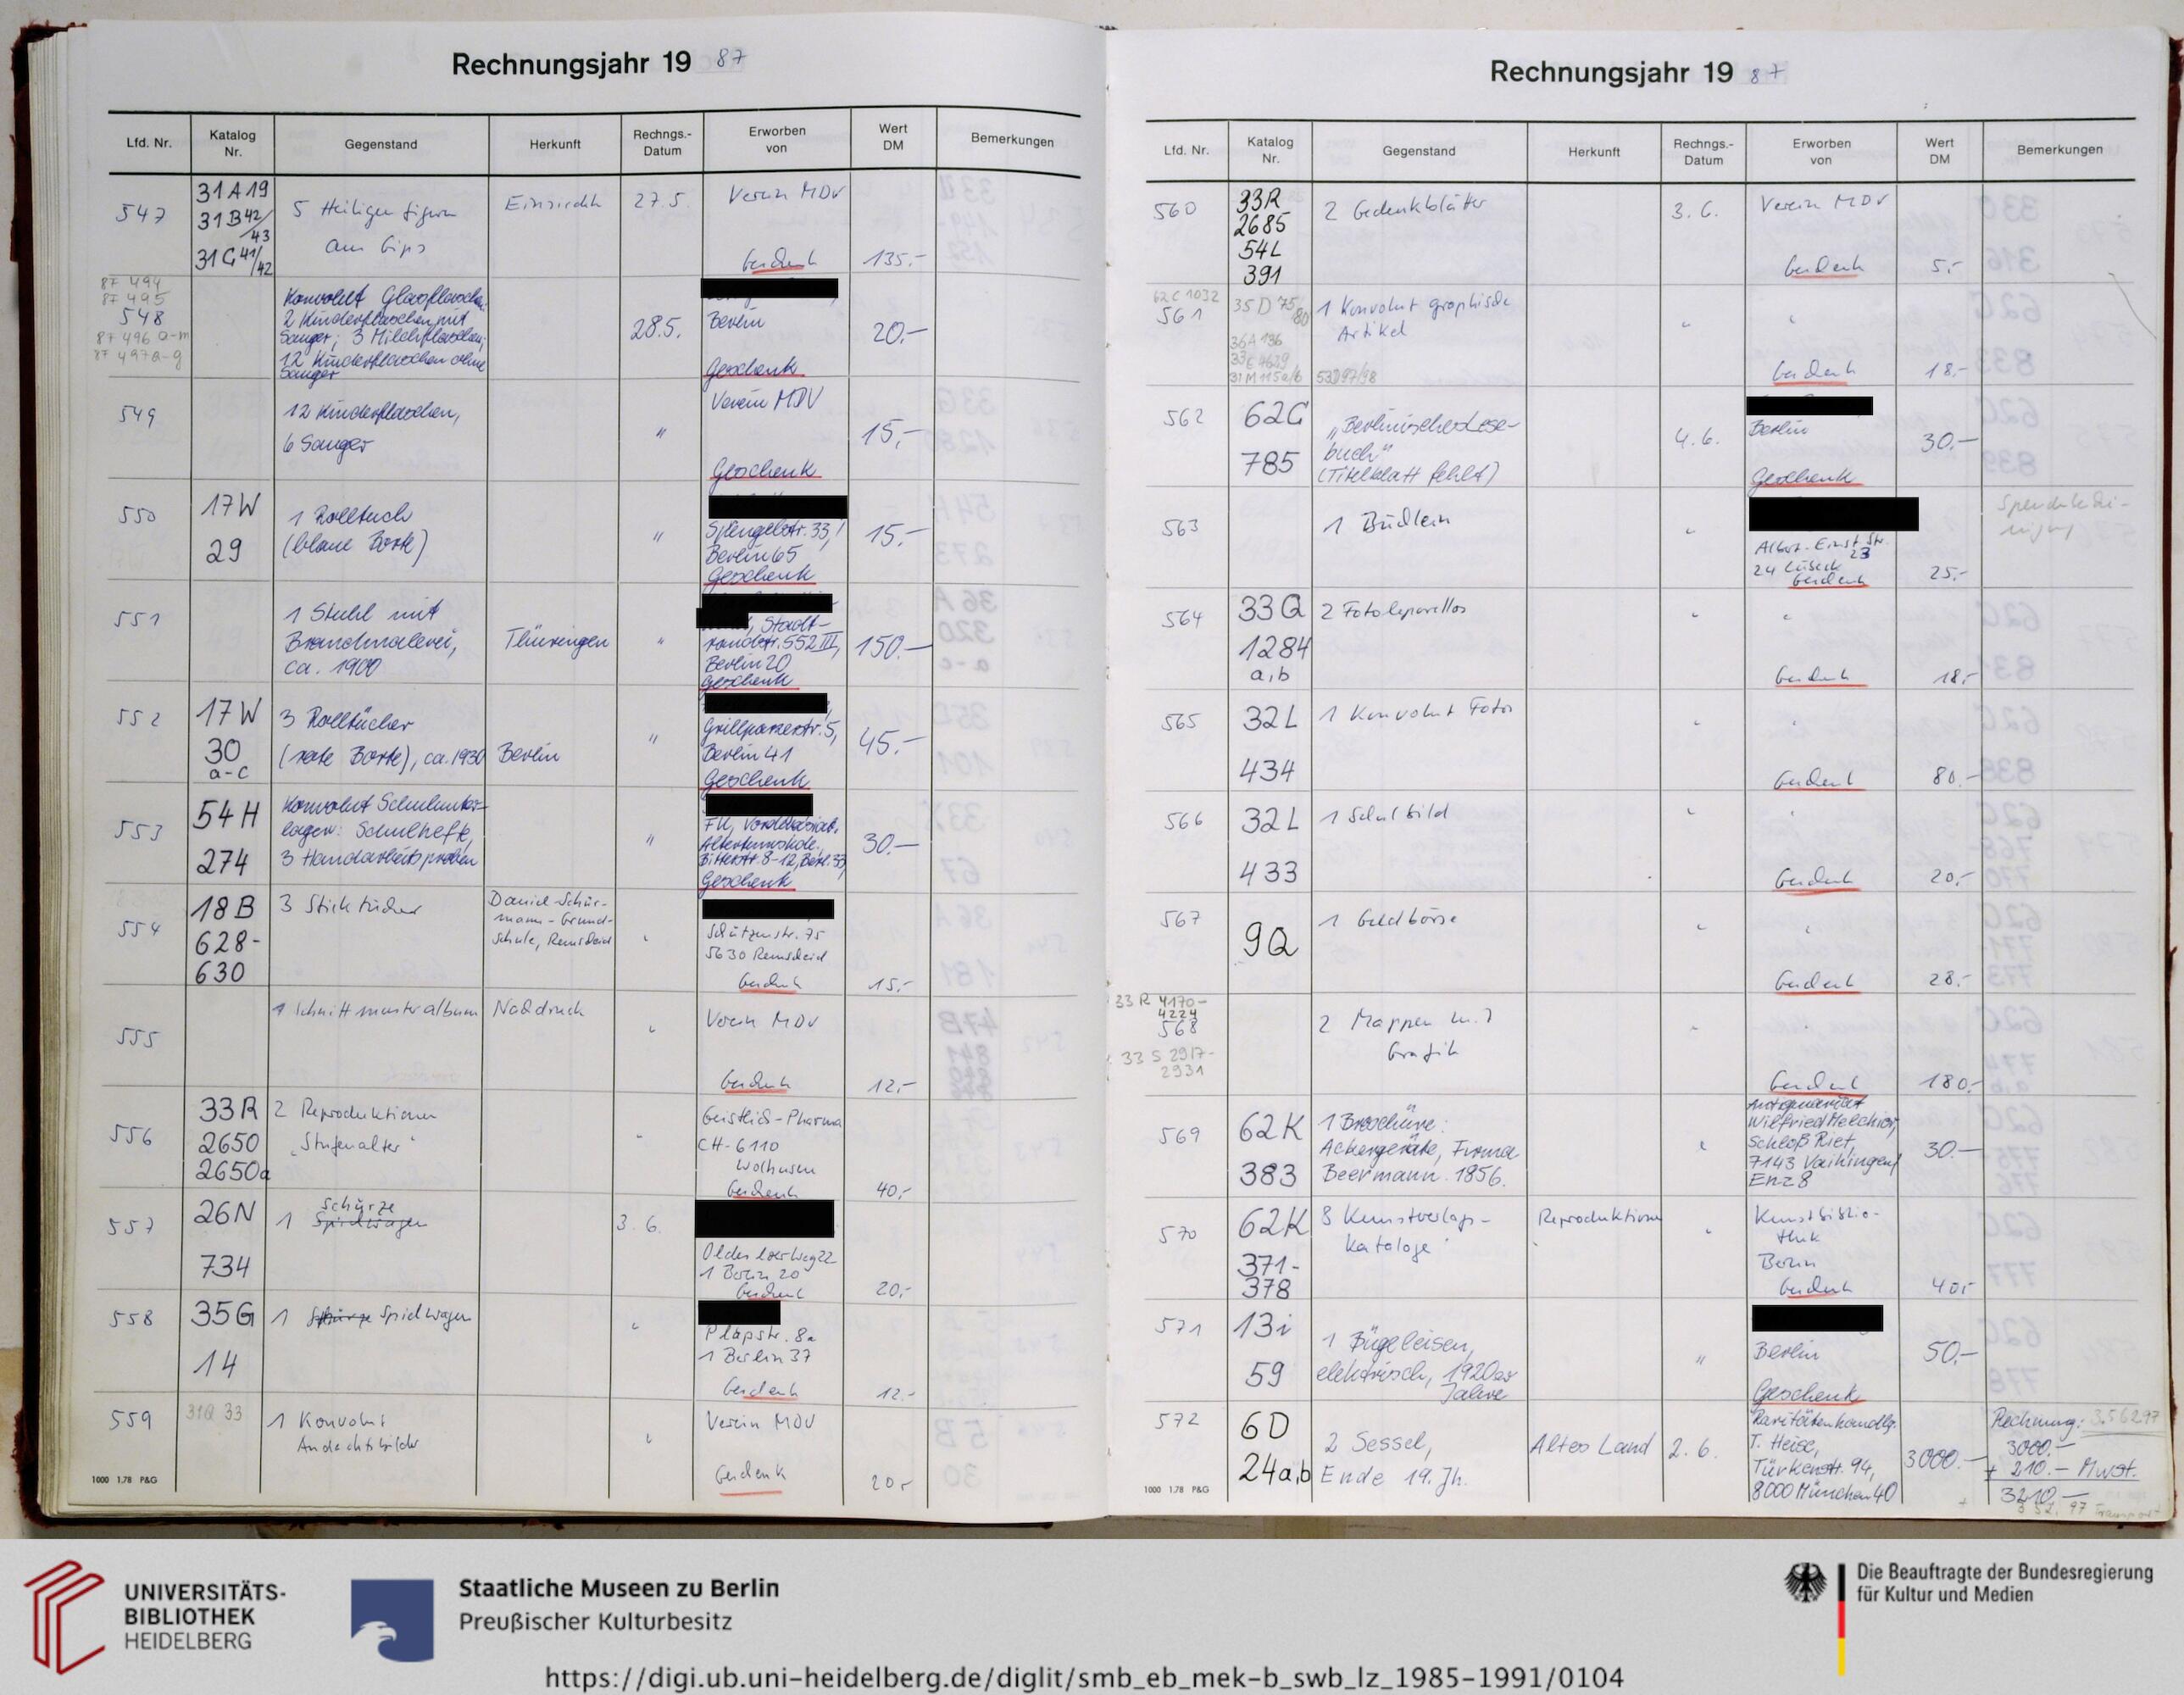 Rechnungsjahr 19 87
Lfd. Nr. Katalog Nr. Gegenstand Herkunft Rechngs.-Datum Erworben von Wert DM Bemerkungen
547
31 A 19
31 B 42/43
31 C 41/42
5 Heiligenfiguren
aus Gips
27.5.
Verein MDV
Geschenk
135.-
87 494
87 495
548
87 496 a-m
87 497 a-g
Konvolut Glasflaschen
2 Kinderflaschen mit
Sauger; 3 Milchflaschen;
12 Kinderflaschen ohne
Sauger
28.5.
Berlin
Geschenk
20.-
549
12 Kinderflaschen,
6 Sauger
"
Verein MDV
Geschenk
15.-
550
17 W
29
1 Rolltuch
(blaue Borte)
"
Sprengelstr. 33,
Berlin 65
Geschenk
15.-
551
1 Stuhl mit
Brandmalerei,
ca. 1900
Thüringen
"
Stadt-
randstr. 552 III,
Berlin 20
Geschenk
150.-
552
17 W
30
a-c
3 Rolltücher
(rote Borte), ca. 1930
Berlin
"
Grillparzerstr. 5,
Berlin 41
Geschenk
45.-
553
54 H
274
Konvolut Schulunter-
lagen: Schulhefte,
3 Handarbeitsproben
"
FU,
Altertumskde.
Bitterstr. 8-12, Berl. 33,
Geschenk
30.-
554
18 B
628-
630
3 Sticktücher
Daniel-Schür-
mann-Grund-
schule, Remscheid
"
Schützenstr. 75
5630 Remscheid
Geschenk
15.-
555
1 Schnittmusteralbum
Nachdruck
"
Verein MDV
Geschenk
12.-
556
33 R
2650
2650a
2 Reproduktionen
"Stufenalter"
"
Geistlich-Pharma
CH-6110
Wolhusen
Geschenk
40.-
557
26 N
734
Schürze
1 Spielwagen
3.6.
1 Berlin 20
Geschenk
20.-
558
35 G
14
1 Schürze Spielwagen
"
1 Berlin 37
Geschenk
12.-
559
31 Q 33
1 Konvolut
Andachtsbilder
"
Verein MDV
Geschenk
20.-
1000 1.78 P&G
Rechnungsjahr 19 87
Lfd. Nr. Katalog Nr. Gegenstand Herkunft Rechngs.-Datum Erworben von Wert DM Bemerkungen
560
33 R
2685
54 L
391
2 Gedenkblätter
3.6.
Verein MDV
Geschenk
5.-
62 C 1032
561
35 D 75/80
36 A 136
33 C 4639
31 M 115 a/b
1 Konvolut graphische
Artikel
53 D 97/98
"
"
Geschenk
18.-
562
62 C
785
"Berlinisches Lese-
buch"
(Titelblatt fehlt)
4.6.
Berlin
Geschenk
30.-
563
1 Büchlein
"
Albert-Einst. Str.
23
24 Lübeck
Geschenk
25.-
564
33 Q
1284
a,b
2 Fotoleporellos
"
"
Geschenk
18.-
565
32 L
434
1 Konvolut Fotos
"
"
Geschenk
80.-
566
32 L
433
1 Schulbild
"
"
Geschenk
20.-
567
9 Q
1 Geldbörse
"
"
Geschenk
28.-
33 R 4170-
4224
568
33 S 2917-
2931
2 Mappen m.
Grafik
"
"
Geschenk
180.-
569
62 K
383
1 Broschüre:
Ackergeräte, Firma
Beermann. 1856.
"
Antiquariat
Wilfried Melchior,
Schloß Riet,
7143 Vaihingen/
Enz 8
30.-
570
62 K
371-
378
8 Kunstverlags-
kataloge
Reproduktionen
"
Kunstbiblio-
thek
Berlin
Geschenk
40.-
571
13 i
59
1 Bügeleisen,
elektrisch, 1920er
Jahre
"
Berlin
Geschenk
50.-
572
6 D
24 a,b
2 Sessel,
Ende 19. Jh.
Altes Land
2.6.
Raritätenhandlg.
T. Heise,
Türkenstr. 94,
8000 München 40
3000.-
Rechnung: 3.562,97
3000.-
+ 210.- Mwst.
3210.-
352,97 Transport
1000 1.78 P&G
UNIVERSITÄTS-
BIBLIOTHEK
HEIDELBERG
Staatliche Museen zu Berlin
Preußischer Kulturbesitz
Die Beauftragte der Bundesregierung
für Kultur und Medien
https://digi.ub.uni-heidelberg.de/diglit/smb_eb_mek-b_swb_lz_1985-1991/0104